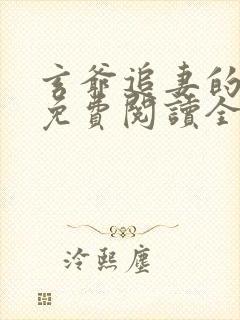 玄爺追妻的
免費閱讀全
冷熙塵